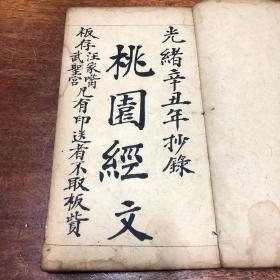 光緒辛丑年抄錄
桃園經文
板存汪家嘴武聖宮凡有印送者不取板貲